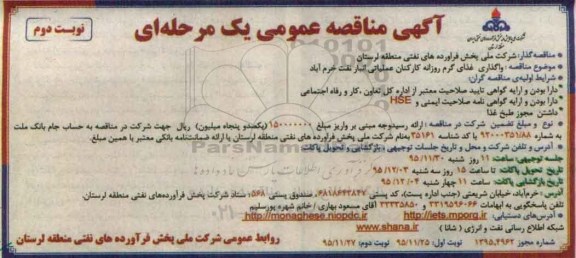 آگهی مناقصه عمومی یک مرحله‌ای
نوبت دوم
مناقصه‌گذار: شرکت ملی پخش فرآورده های نفتی منطقه لرستان
موضوع مناقصه : واگذاری غذای گرم روزانه کارکنان عملیاتی انبار نفت خرم آباد
شرایط اولیه‌ی مناقصه گران:
دارا بودن و ارایه گواهی تایید صلاحیت معتبر از اداره کل تعاون ،کار و رفاه اجتماعی
دارا بودن و ارایه گواهی نامه صلاحیت ایمنی و HSE
داشتن مجوز طبخ غذا
نوع و مبلغ تضمین شرکت در مناقصه : ارائه رسیدوجه مبنی بر واریز مبلغ ۱۵۰۰۰۰۰۰۰ (یکصدو پنجاه میلیون) ریال جهت شرکت در مناقصه به حساب جام بانک ملت
به شماره ۹۲۰۰۰۳۵۱/۸۸ با کد شناسه ۳۵۱۶۱ بنام شرکت ملی پخش فرآورده های نفتی منطقه لرستان یا ارائه ضمانت‌نامه بانکی معتبر با همین مبلغ.
آدرس و تلفن شرکت و محل و تاریخ جلسات توجیهی ،بازگشایی و تحویل پاکات
جلسه توجیهی: ساعت: ۱۱ روز شنبه ۹۵/۱۱/۳۰
تاریخ تحویل پاکات: تا ساعت ۱۵ روز سه شنبه ۹۵/۱۲/۰۳
تاریخ بازگشایی پاکات: ساعت ۱۱ چهار شنبه ۹۵/۱۲/۰۴
آدرس: خرم‌آباد، خیابان شریعتی (جنب اداره پست)، کد پستی ۶۸۱۸۶۴۳۸۴۷ صندوق پستی ۵۶۸، ستاد شرکت پخش فرآورده‌های نفتی منطقه لرستان.
تلفن پاسخگویی به ابهامات ۳۳۱۹۵۹۰۶۶ و ۳۳۳۳۵۸۵۰ آقای مسعود بهاری / خانم شهره پورسلیم
آدرس‌های دستیابی: http://iets.mporg.ir http://monaghese.niopdc.ir
شبکه اطلاع رسانی نفت و انرژی ( شانا ) www.shana.ir
۱۳۹۵،۴۹۶۲ نوبت اول: ۹۵/۱۱/۲۵ نوبت دوم: ۹۵/۱۱/۲۷
روابط عمومی شرکت ملی پخش فرآورده های نفتی منطقه لرستان